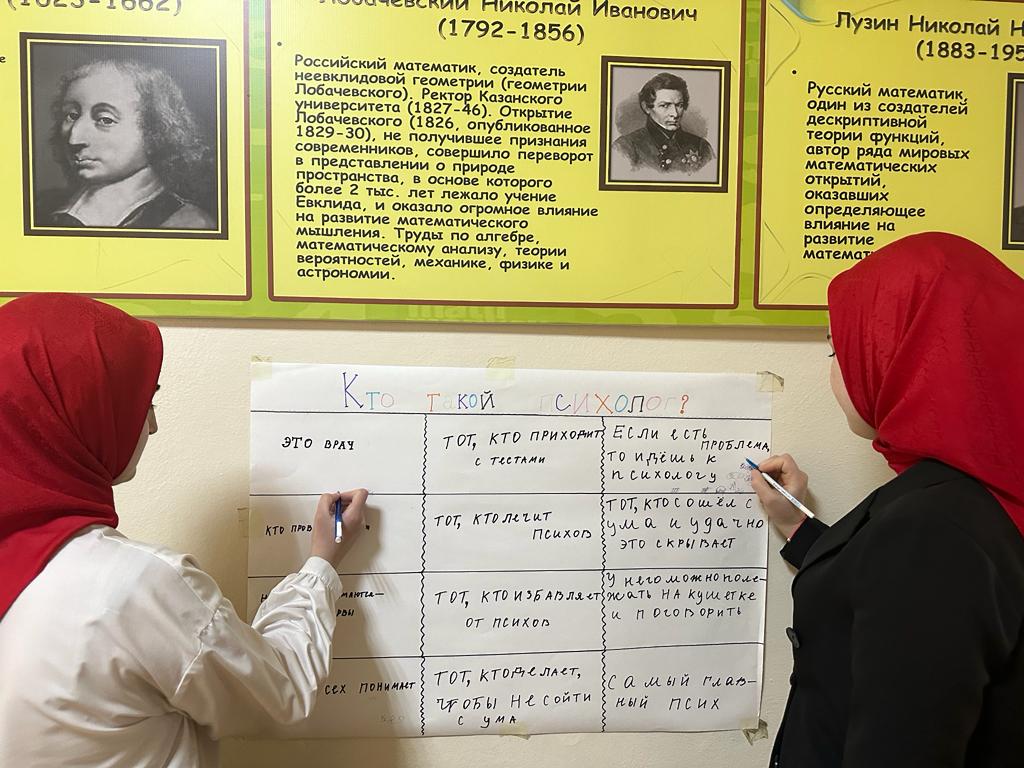 (1623-1662)
Лобачевский Николай Иванович
(1792-1856)
Российский математик, создатель
неевклидовой геометрии (геометрии
Лобачевского). Ректор Казанского
университета (1827-46). Открытие
Лобачевского (1826, опубликованное
1829-30), не получившее признания
современников, совершило переворот
в представлении о природе
пространства, в основе которого
более 2 тыс. лет лежало учение
Евклида, и оказало огромное влияние
на развитие математического
мышления. Труды по алгебре,
математическому анализу, теории
вероятностей, механике, физике и
астрономии.
Лузин Николай Н
(1883-195
Русский математик,
один из создателей
дескриптивной
теории функций,
автор ряда мировых
математических
открытий,
оказавших
определяющее
влияние на
развитие
математ
Кто такой психолог?
ЭТО ВРАЧ
ТОТ, КТО ПРИХОДИТ
С ТЕСТАМИ
ЕСЛИ ЕСТЬ
ПРОБЛЕМА,
ТО ИДЁШЬ К
ПСИХОЛОГУ
КТО ПРОВ
ТОТ, КТО ЛЕЧИТ
ПСИХОВ
ТОТ, КТО СОШЁЛ С
УМА И УДАЧНО
ЭТО СКРЫВАЕТ
МАЮТСЯ
РВЫ
ТОТ, КТО ИЗБАВЛЯЕТ
ОТ ПСИХОВ
У НЕГО МОЖНО ПОЛЕ-
ЖАТЬ НА КУШЕТКЕ
И ПОГОВОРИТЬ
СЕХ ПОНИМАЕТ
ТОТ, КТО ДЕЛАЕТ,
ЧТОБЫ НЕ СОЙТИ
С УМА
САМЫЙ ГЛАВ-
НЫЙ ПСИХ